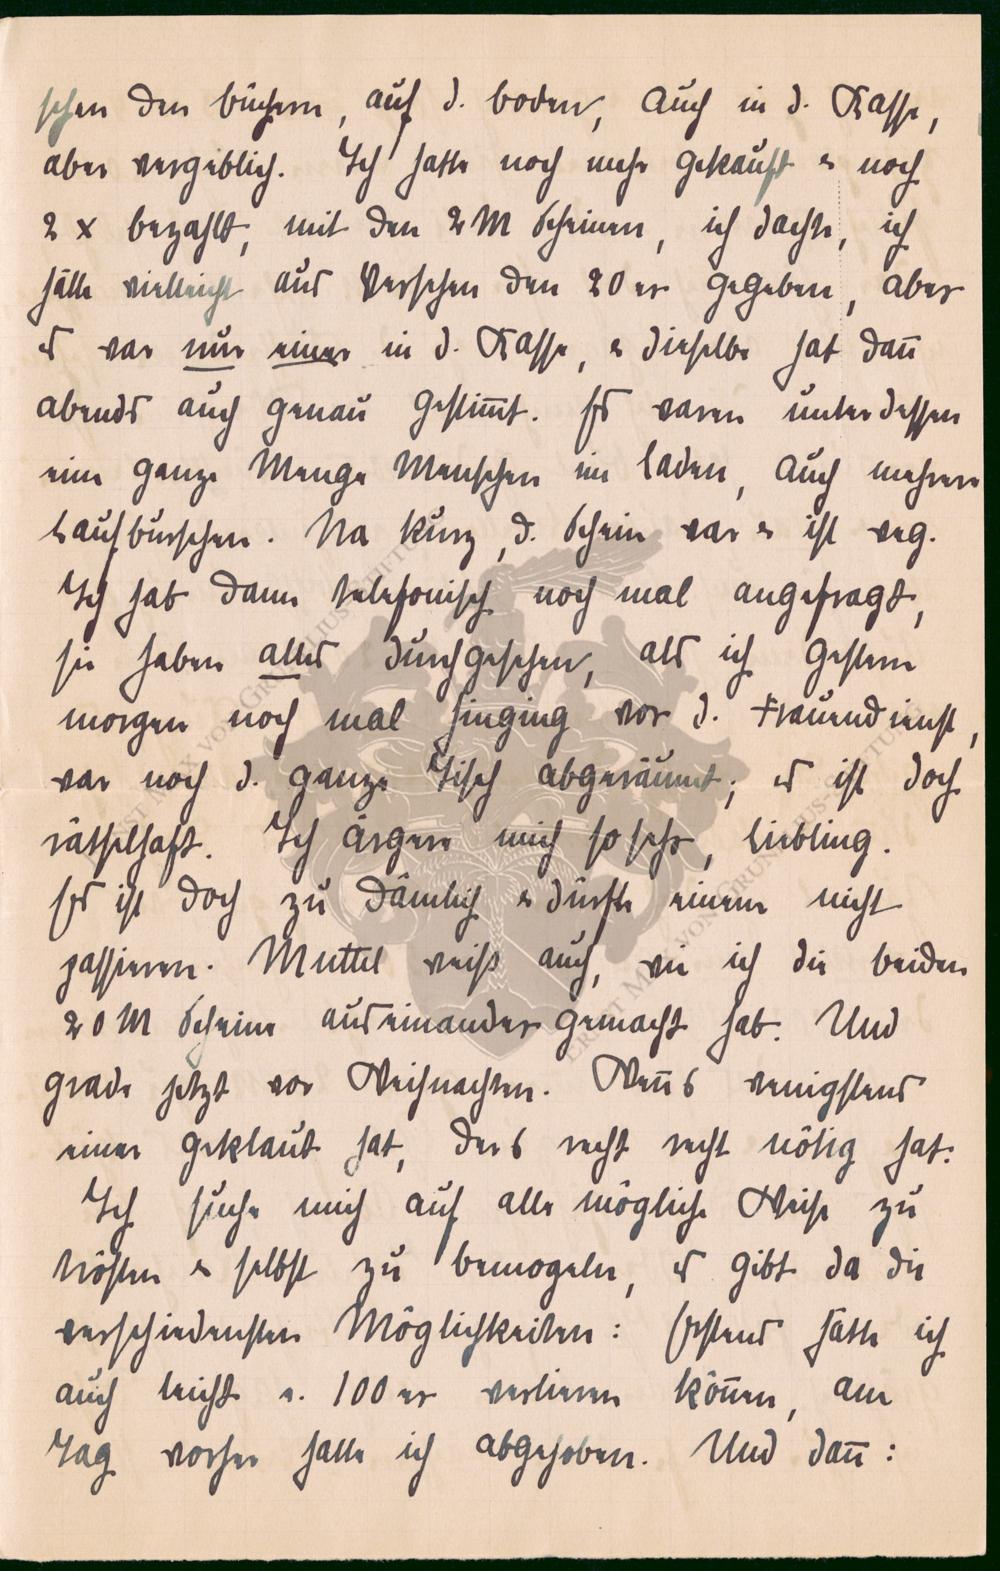 schen den büchern, auf d. boden, auch in d. Kasse,
aber vergeblich. Ich hatte noch mehr gekauft & noch
2 x bezahlt, mit den 2 M Scheinen, ich dachte, ich
hätte vielleicht aus Versehen den 20er gegeben, aber
es war nur einer in d. Kasse, & dieselbe hat dan̄
abends auch genau gestim̄t. Es waren unterdessen
eine ganze Menge Menschen im laden, auch mehrere
Laufburschen. Na kurz, d. Schein war & ist weg.
Ich hab dann telefonisch noch mal angefragt,
sie haben alles durchgesehen, als ich gestern
morgen noch mal hinging vor d. Frauendienst,
war noch d. ganze Tisch abgeräumt; es ist doch
rätselhaft. Ich ärgere mich so sehr, Liebling.
Es ist doch zu dämlich & dürfte einem nicht
passieren. Muttel weiss auch, wie ich die beiden
20 M Scheine auseinander gemacht hab. Und
grade jetzt vor Weihnachten. Wen̄s wenigstens
einer geklaut hat, ders recht recht nötig hat.
Ich suche mich auf alle mögliche Weise zu
trösten & selbst zu bemogeln, es gibt da die
verschiedensten Möglichkeiten: Erstens hätte ich
auch leicht e. 100er verlieren kön̄en, am
Tag vorher hatte ich abgehoben. Und dan̄:
ERNST MAX VON GRUNELIUS-STIFTUNG
ERNST MAX VON GRUNELIUS-STIFTUNG